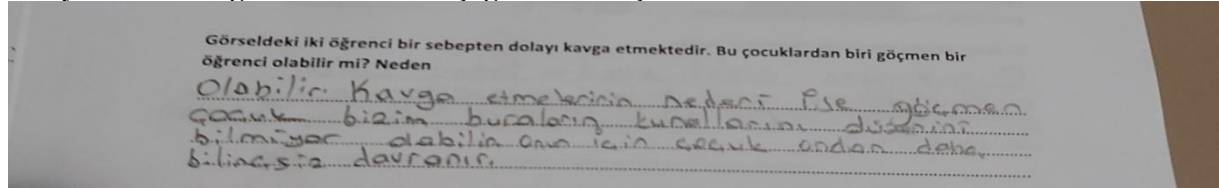 Görseldeki iki öğrenci bir sebepten dolayı kavga etmektedir. Bu çocuklardan biri göçmen bir
öğrenci olabilir mi? Neden
Olabilir. Kavga etmelerinin nedeni ise göçmen
çocuk bizim buraların kurallarını düzenini
bilmiyor olabilir onun için çocuk ondan daha
bilinçsiz davranır.